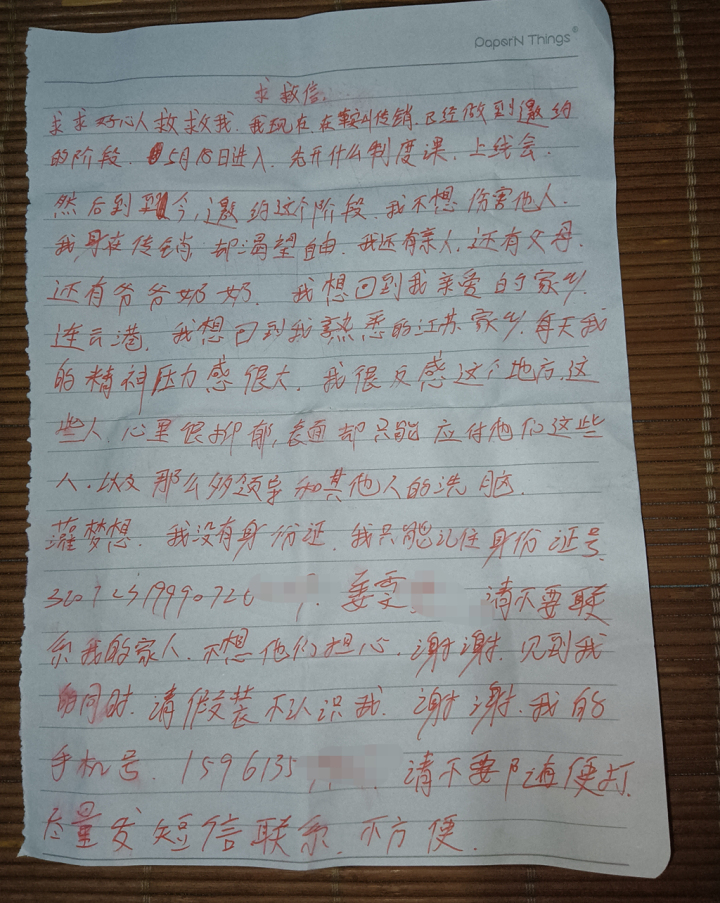 PaperN Things
求救信.
求求好心人救救我.我现在在鞍山传销.已经做到邀约
的阶段.5月18日进入.先开什么制度课.上线会.
然后到现今,邀约这个阶段.我不想伤害他人.
我身在传销却渴望自由.我还有亲人.还有父母.
还有爷爷奶奶.我想回到我亲爱的家乡
连云港.我想回到我熟悉的江苏家乡.每天我
的精神压力感很大.我很反感这个地方.这
些人.心里很抑郁,表面却只能应付他们这些
人.以及那么多领导和其他人的洗脑.
灌梦想.我没有身份证.我只能记住身份证号.
请不要联
系我的家人.不想他们担心.谢谢.见到我
的同时.请假装不认识我.谢谢.我的
手机号.1596135 请不要随便打.
尽量发短信联系.不方便.